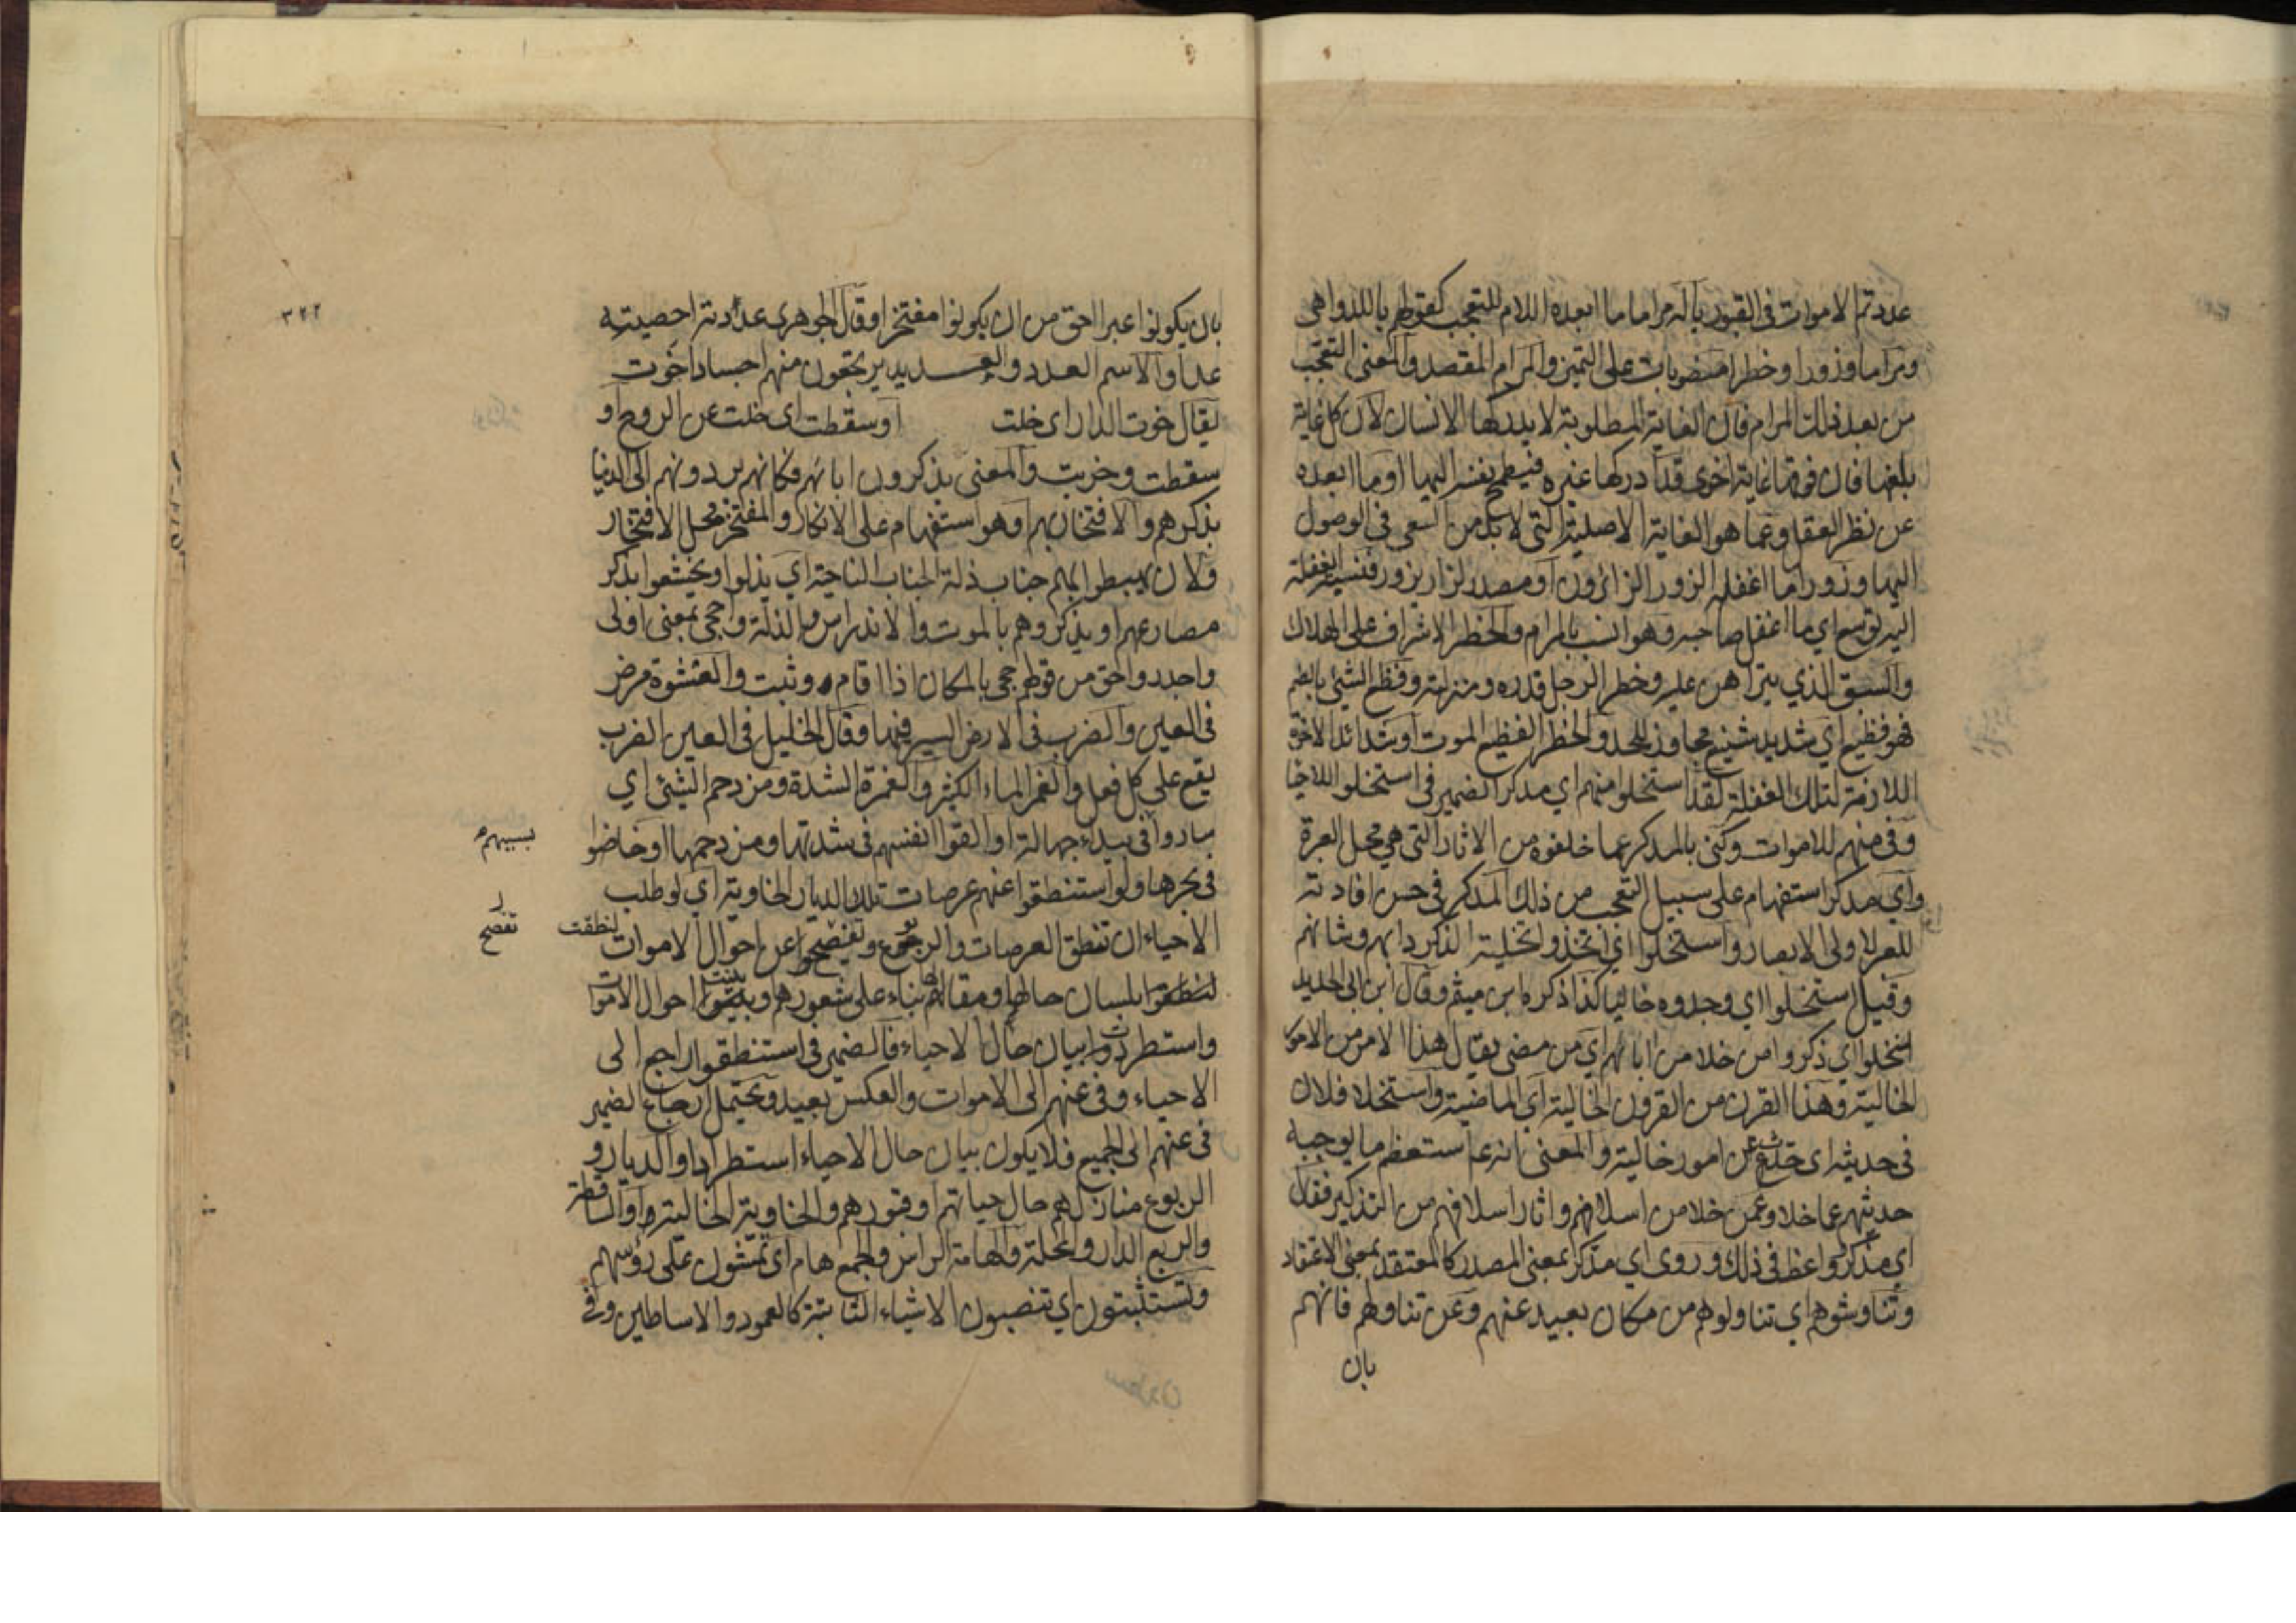 عددتم الاموات في القبور ياله مراما ما ابعده اللام للتعجب كقولهم ياللدواهي
ومراما وزورا وخطرا منصوبات على التميز والمرام المقصد والمعنى التعجب
من بعد ذلك المرام فان الغاية المطلوبة لا يدركها الانسان لان كل غاية
بلغها فان فوقها غاية اخرى قد ادركها غيره فيطمح نفسه اليها او ما ابعده
عن نظر العقل وعما هو الغاية الاصلية التي لا بد من السعي في الوصول
اليها وزورا ما اغفله الزور الزائرون او مصدر لزار يزور فنسبة الغفلة
اليه توسع اي ما اغفل صاحبه وهو انسب بالمرام والخطر الاشراف على الهلاك
والسبق الذي يتراهن عليه وخطر الرجل قدره ومنزلته وفظع الشئ بالضم
فهو فظيع اي شديد شنيع مجاوز للحد والخطر الفظيع الموت او شدائد الاخرة
اللازمة لتلك الغفلة لقد استخلوا منهم اي مدكر الضمير في استخلوا للاحيا
وفي منهم للاموات وكنى بالمدكر عما خلفوه من الاثار التي هي محل العبرة
واي مدكر استفهام على سبيل التعجب من ذلك المدكر في حسن افادته
للعبر لاولى الابصار واستخلوا اي اتخذوا تخلية الذكر دابهم وشانهم
وقيل استخلوا اي وجدوه خاليا كذا ذكره ابن ميثم وقال ابن ابي الحديد
استخلوا اي ذكروا من خلا من ابائهم اي من مضى يقال هذا الامر من الامور
الخالية وهذا القرن من القرون الخالية اي الماضية واستخلا فلان
في حديثه اي حدث عن امور خالية والمعنى انه ع استعظم ما يوجبه
حديثهم عما خلا وعمن خلا من اسلافهم واثار اسلافهم من التذكير فقال
اي مدكر واعظ في ذلك وروى اي مذكر بمعنى المصدر كالمعتقد بمعنى الاعتقاد
وتناوشوهم اي تناولوهم من مكان بعيد عنهم وعن تناولهم فانهم
بان
٣٢٢
بان يكونوا عبرا احق من ان يكونوا مفتخرا وقال الجوهري عددته احصيته
عدا والاسم العدد والعديد يرتجعون منهم اجسادا خوت
يقال خوت الدار اي خلت او سقطت اي خلت عن الروح او
سقطت وخربت والمعنى يذكرون ابائهم فكانهم يردونهم الى الدنيا
بذكرهم والافتخار بهم وهو استفهام على الانكار والمفتخر محل الافتخار
ولان يهبطوا بهم جناب ذلة الجناب الناحية اي يذلوا ويخشعوا بذكر
مصارعهم او يذكروهم بالموت والاندراس والذلة واحجى بمعنى اولى
واجدر واحق من قولهم حجى بالمكان اذا اقام وثبت والعشوة مرض
في العين والضرب في الارض السير فيها وقال الخليل في العين الضرب
يقع على كل فعل والغمر الماء الكثير والغمرة الشدة ومزدحم الشئ اي
ساروا في بيداء جهالة او القوا انفسهم في شدتها ومزدحمها او خاضوا
بسببهم
في بحرها ولو استنطقوا عنهم عرصات تلك الديار الخاوية اي لو طلب
الاحياء ان تنطق العرصات والربوع وتفصحوا عن احوال الاموات
لنطقت
تفصح
لنطقوا بلسان حالها ومقالها بناء على شعورهم وبينوا احوال الاموات
واستطردوا بيان حال الاحياء فالضمير في استنطقوا راجع الى
الاحياء وفي عنهم الى الاموات والعكس بعيد ويحتمل ارجاع الضمير
في عنهم الى الجميع فلا يكون بيان حال الاحياء استطرادا والديار و
الربوع منازلهم حال حياتهم او قبورهم والخاوية الخالية او الساقطة
والربع الدار والمحلة والهامة الراس والجمع هام اي تمشون على رؤسهم
وتستثبتون اي تنصبون الاشياء الثابتة كالعمود والاساطين وفي